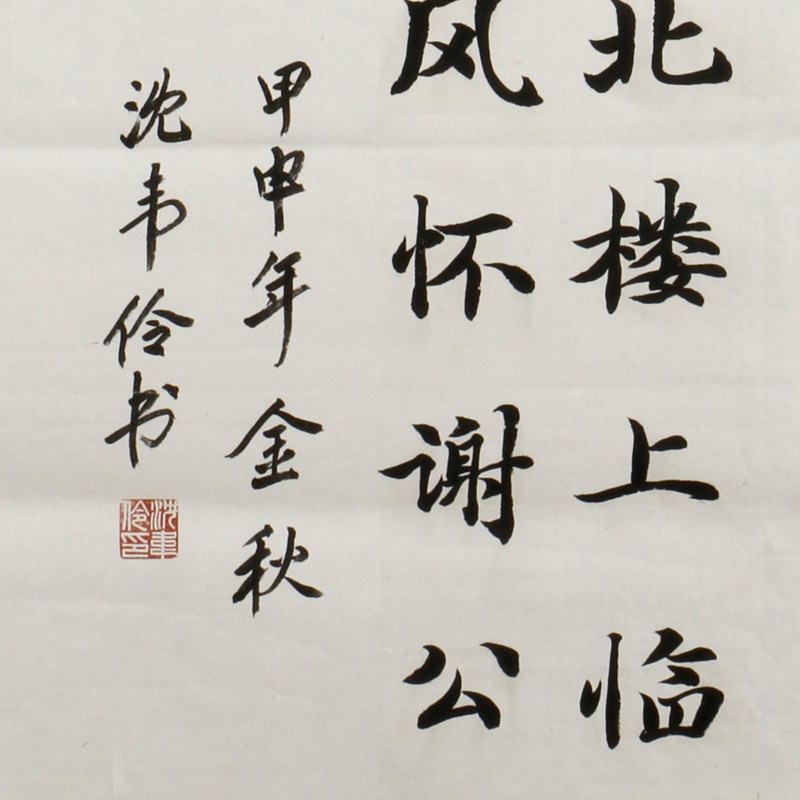 北楼上临
风怀谢公
甲申年金秋
沈韦伶书
沈韦伶印